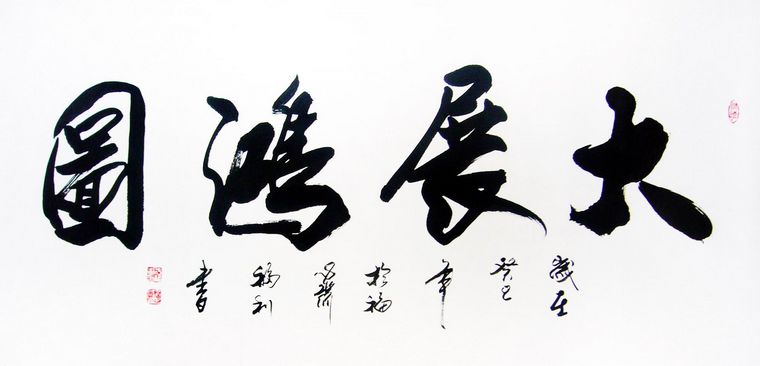 大展鴻圖
歲在癸巳年於福
書